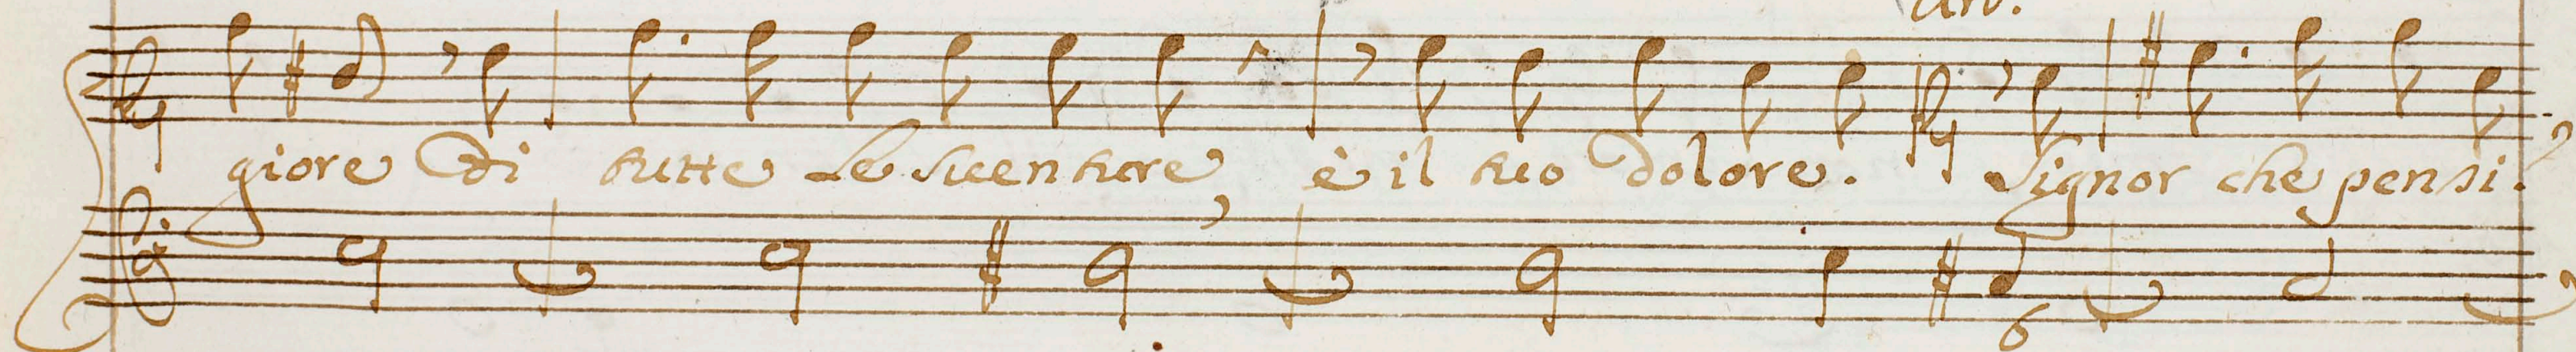 Arb.
giore Di tutte le suenture è il tuo Dolore. Signor che pensi?
6